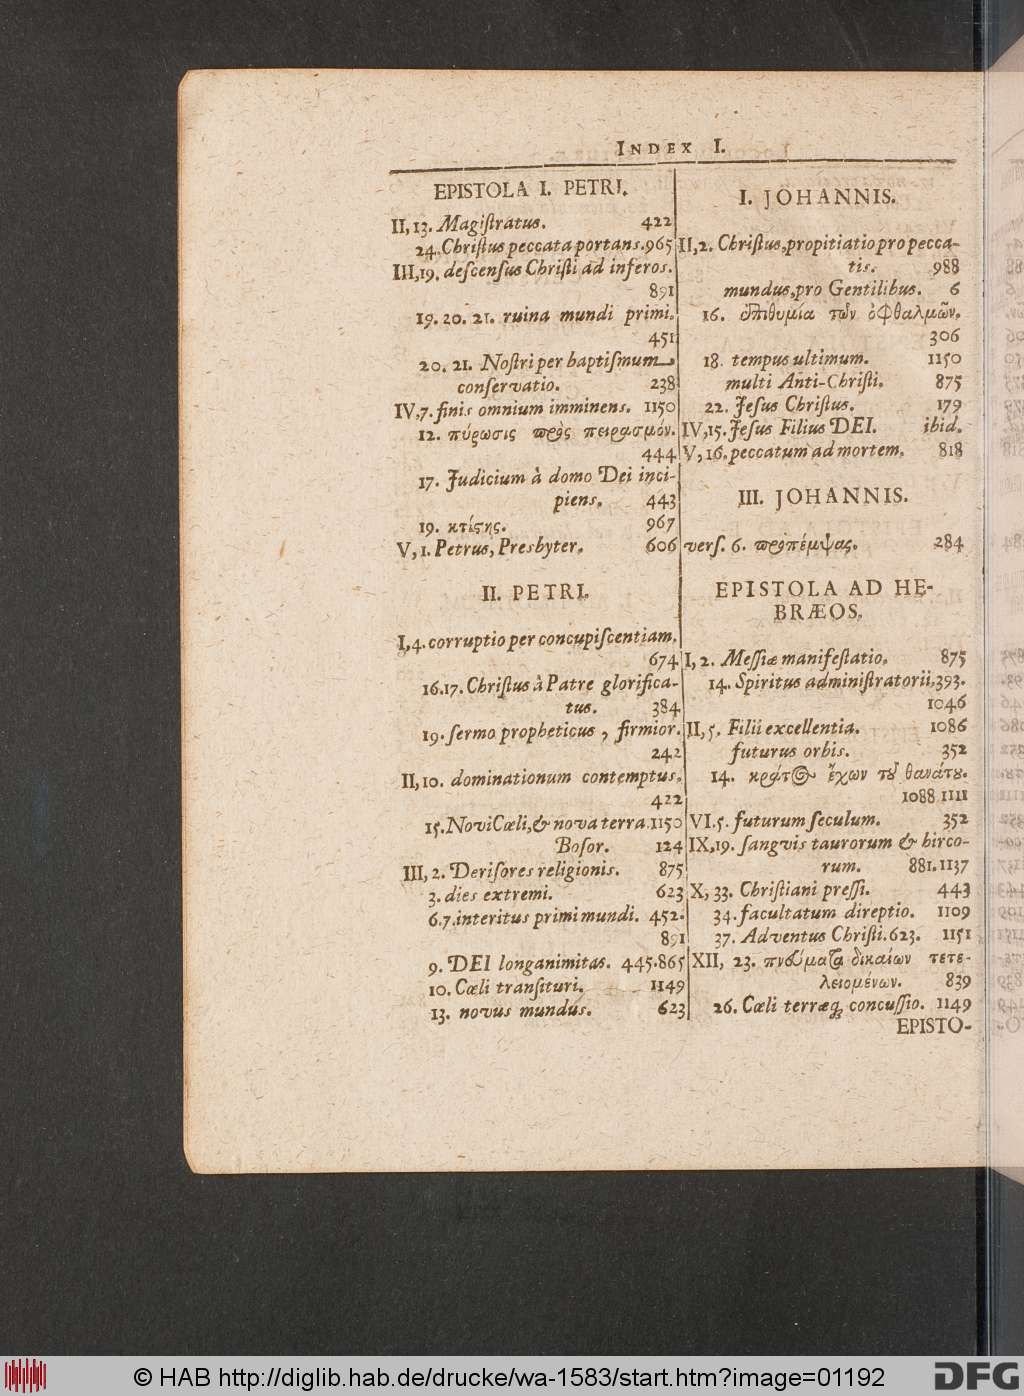 INDEX I.
EPISTOLA I. PETRI.
II, 13. Magiſtratus. 422
24. Chriſtus peccata portans. 965
III, 19. deſcenſus Chriſti ad inferos.
891
19. 20. 21. ruina mundi primi.
451
20. 21. Noſtri per baptiſmum
conſervatio. 238
IV, 7. finis omnium imminens. 1150
12. πύρωσις πρὸς πειρασμόν.
444
17. Judicium à domo Dei inci-
piens. 443
19. κτίςης. 967
V, 1. Petrus, Presbyter. 606
II. PETRI.
I, 4. corruptio per concupiſcentiam.
674
16. 17. Chriſtus à Patre glorifica-
tus. 384
19. ſermo propheticus, firmior.
242
II, 10. dominationum contemptus.
422
15. Novi Cœli, & nova terra. 1150
Boſor. 124
III, 2. Deriſores religionis. 875
3. dies extremi. 623
6. 7. interitus primi mundi. 452.
891
9. DEI longanimitas. 445. 865
10. Cœli tranſituri. 1149
13. novus mundus. 623
I. JOHANNIS.
II, 2. Chriſtus, propitiatio pro pecca-
tis. 988
mundus, pro Gentilibus. 6
16. ἐπιθυμία τῶν ὀφθαλμῶν.
306
18. tempus ultimum. 1150
multi Anti-Chriſti. 875
22. Jeſus Chriſtus. 179
IV, 15. Jeſus Filius DEI. ibid.
V, 16. peccatum ad mortem. 818
III. JOHANNIS.
verſ. 6. προπέμψας. 284
EPISTOLA AD HE-
BRÆOS.
I, 2. Meſſiæ manifeſtatio. 875
14. Spiritus adminiſtratorii. 393.
1046
II, 5. Filii excellentia. 1086
futurus orbis. 352
14. κράτος ἔχων τοῦ θανάτου.
1088 1111
VI. 5. futurum ſeculum. 352
IX, 19. ſangvis taurorum & hirco-
rum. 881. 1137
X, 33. Chriſtiani preſſi. 443
34. facultatum direptio. 1109
37. Adventus Chriſti. 623. 1151
XII, 23. πνεύματα δικαίων τετε-
λειομένων. 839
26. Cœli terræq; concuſſio. 1149
EPISTO-
© HAB http://diglib.hab.de/drucke/wa-1583/start.htm?image=01192
DFG